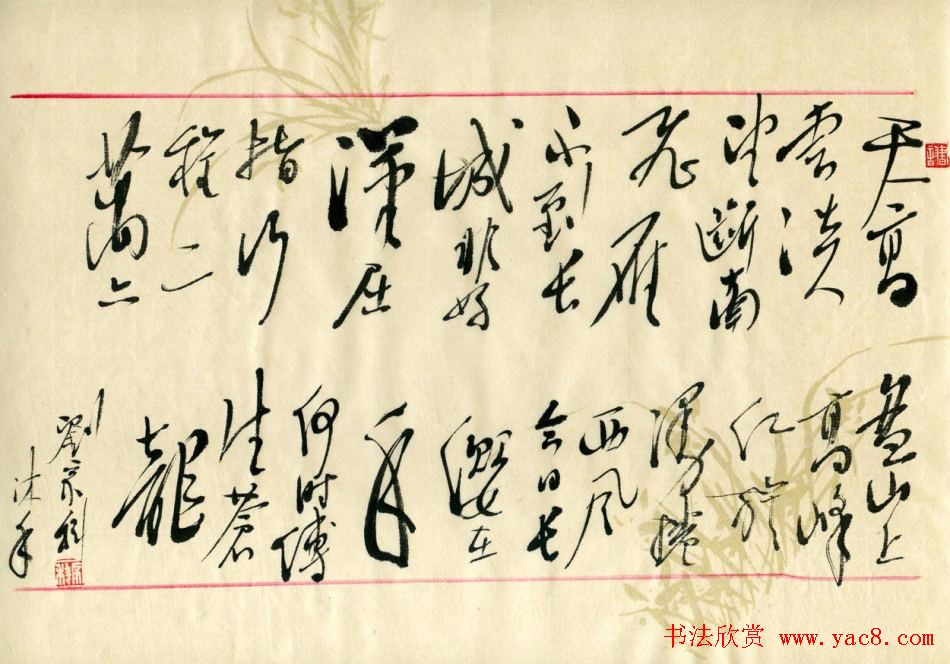 天高
雲淡
望斷南
飛雁
不到长
城非好
漢屈
指行
程二
萬六
盘山上
高峰
红旗
漫捲
西风
今日长
缨在
手
何时缚
住蒼
龍
劉
沐手
书法欣赏 www.yac8.com